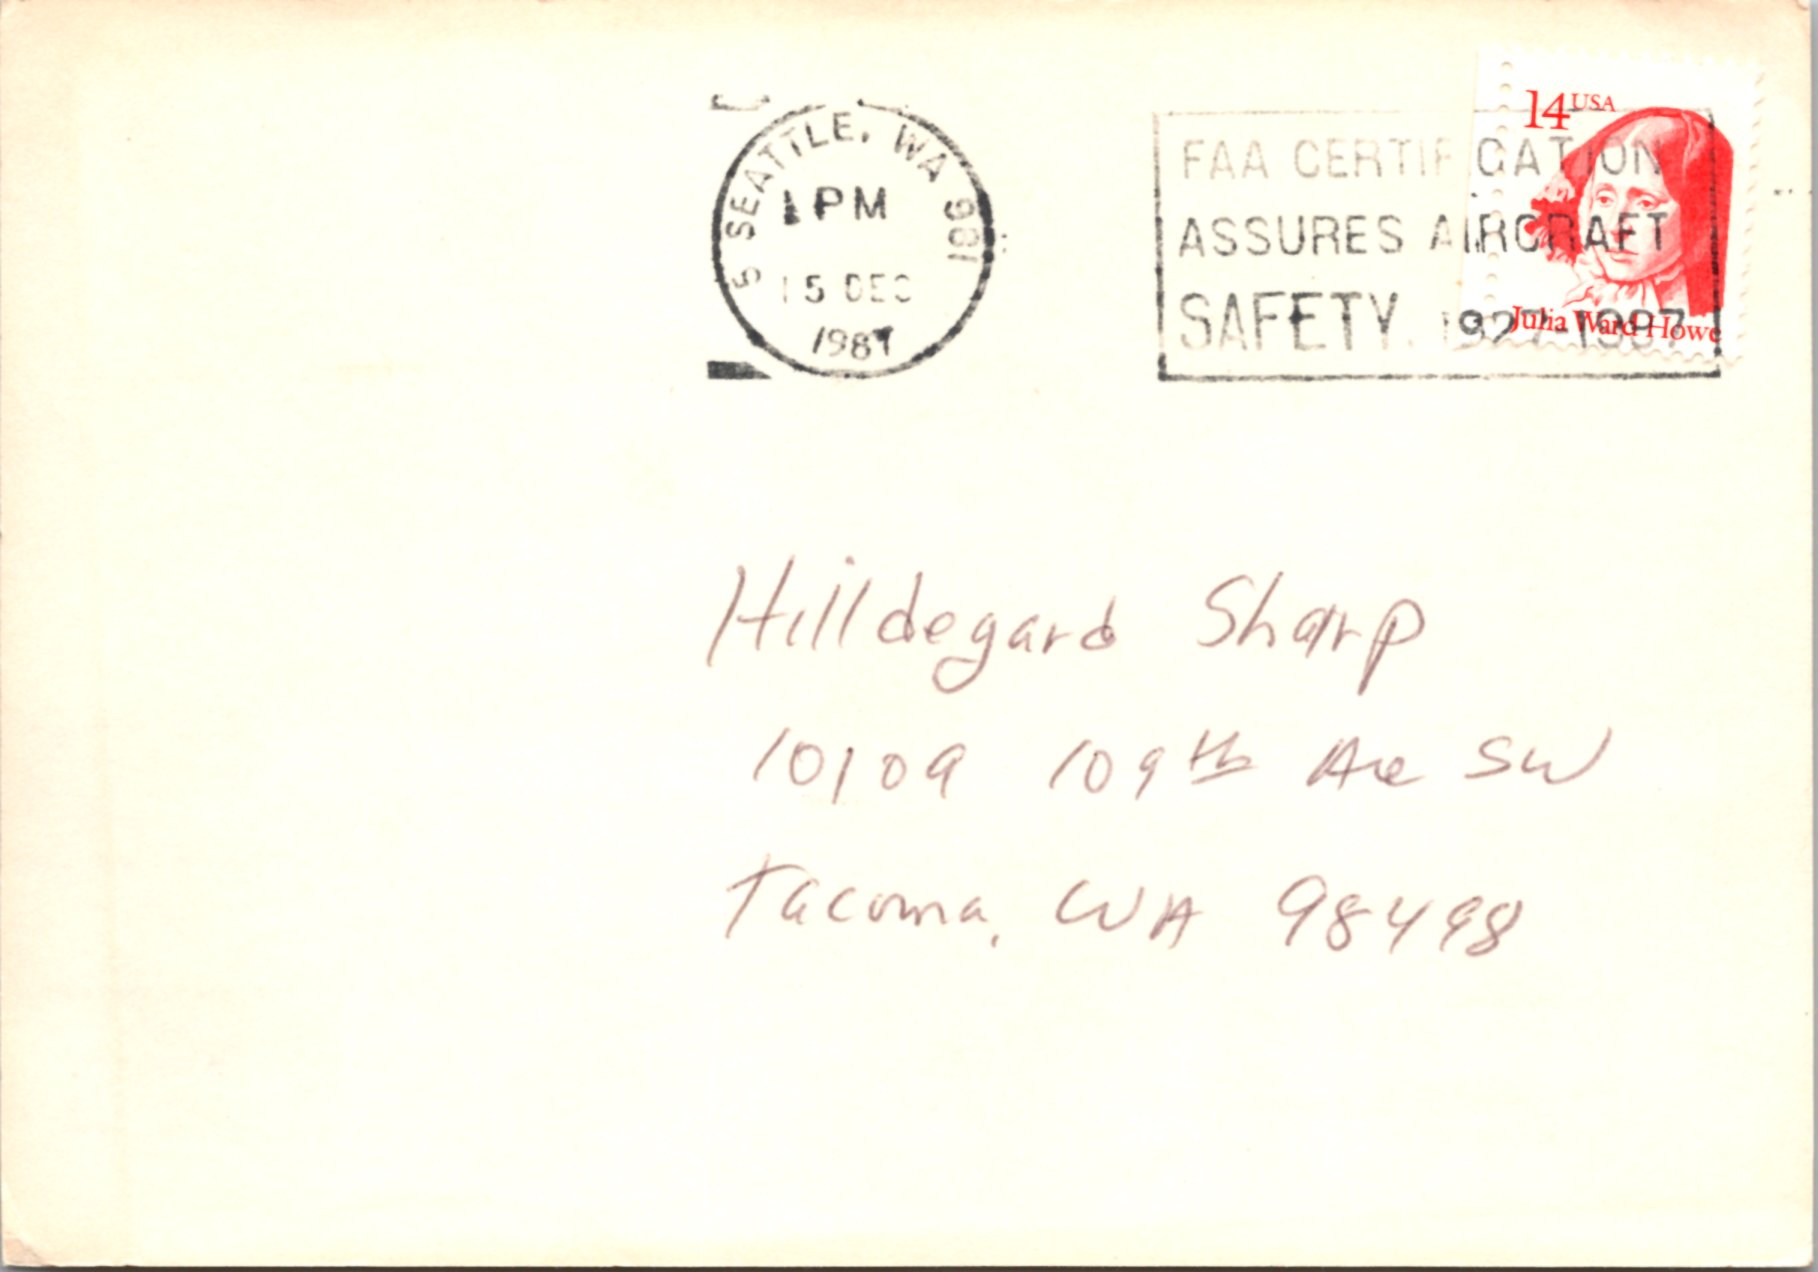 SEATTLE, WA 981
1 PM
15 DEC
1987
FAA CERTIFICATION
ASSURES AIRCRAFT
SAFETY. 1927-1987
14 USA
Julia Ward Howe
Hilldegard Sharp
10109 109th Ave SW
Tacoma, WA 98498